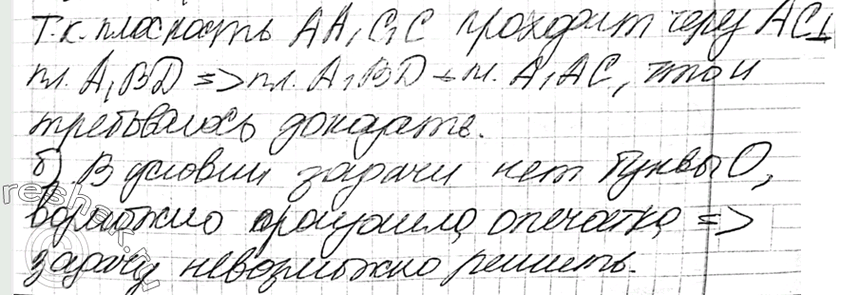 Т.к. плоскость AA₁C₁C проходит через AC⊥
пл. A₁BD => пл. A₁BD ⊥ пл. A₁AC, что и
требовалось доказать.
б) В условии задачи нет буквы O,
возможно произошла опечатка =>
задачу невозможно решить.
reshak.ru